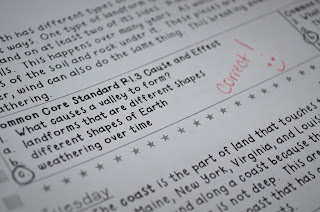 th has different types
t ways. One type of landform
and on at least two of its
lls. This happens over many years. As water
s of the soil and rock under it. These
er, wind can also do the same thing. This breaking down
athering.
ommon Core Standard R.1.3 Cause and Effect
1. What causes a valley to form?
a. landforms that are different shapes
b. different shapes of Earth
c. weathering over time
correct!
Tuesday
The coast is the part of land that touches
Maine, New York, Virginia, and Louis
and along a coast because th
is not deep. This are
coast that has